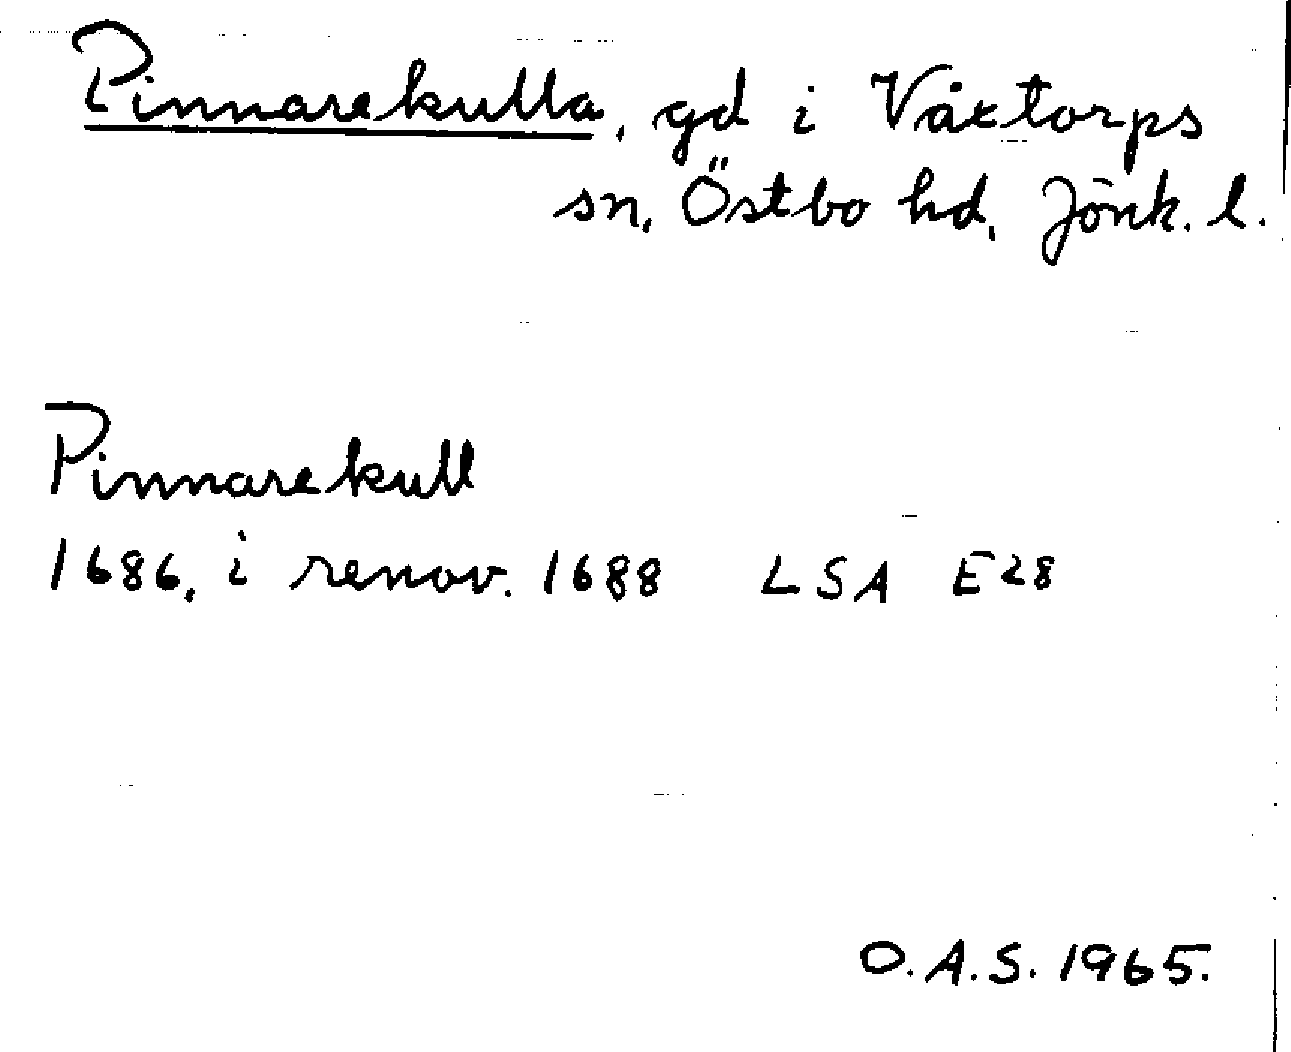 Pinnarekulla, gd i Våxtorps
sn, Östbo hd, Jönk. l.
Pinnarekull
1686, i renov. 1688 LSA E28
O.A.S. 1965.